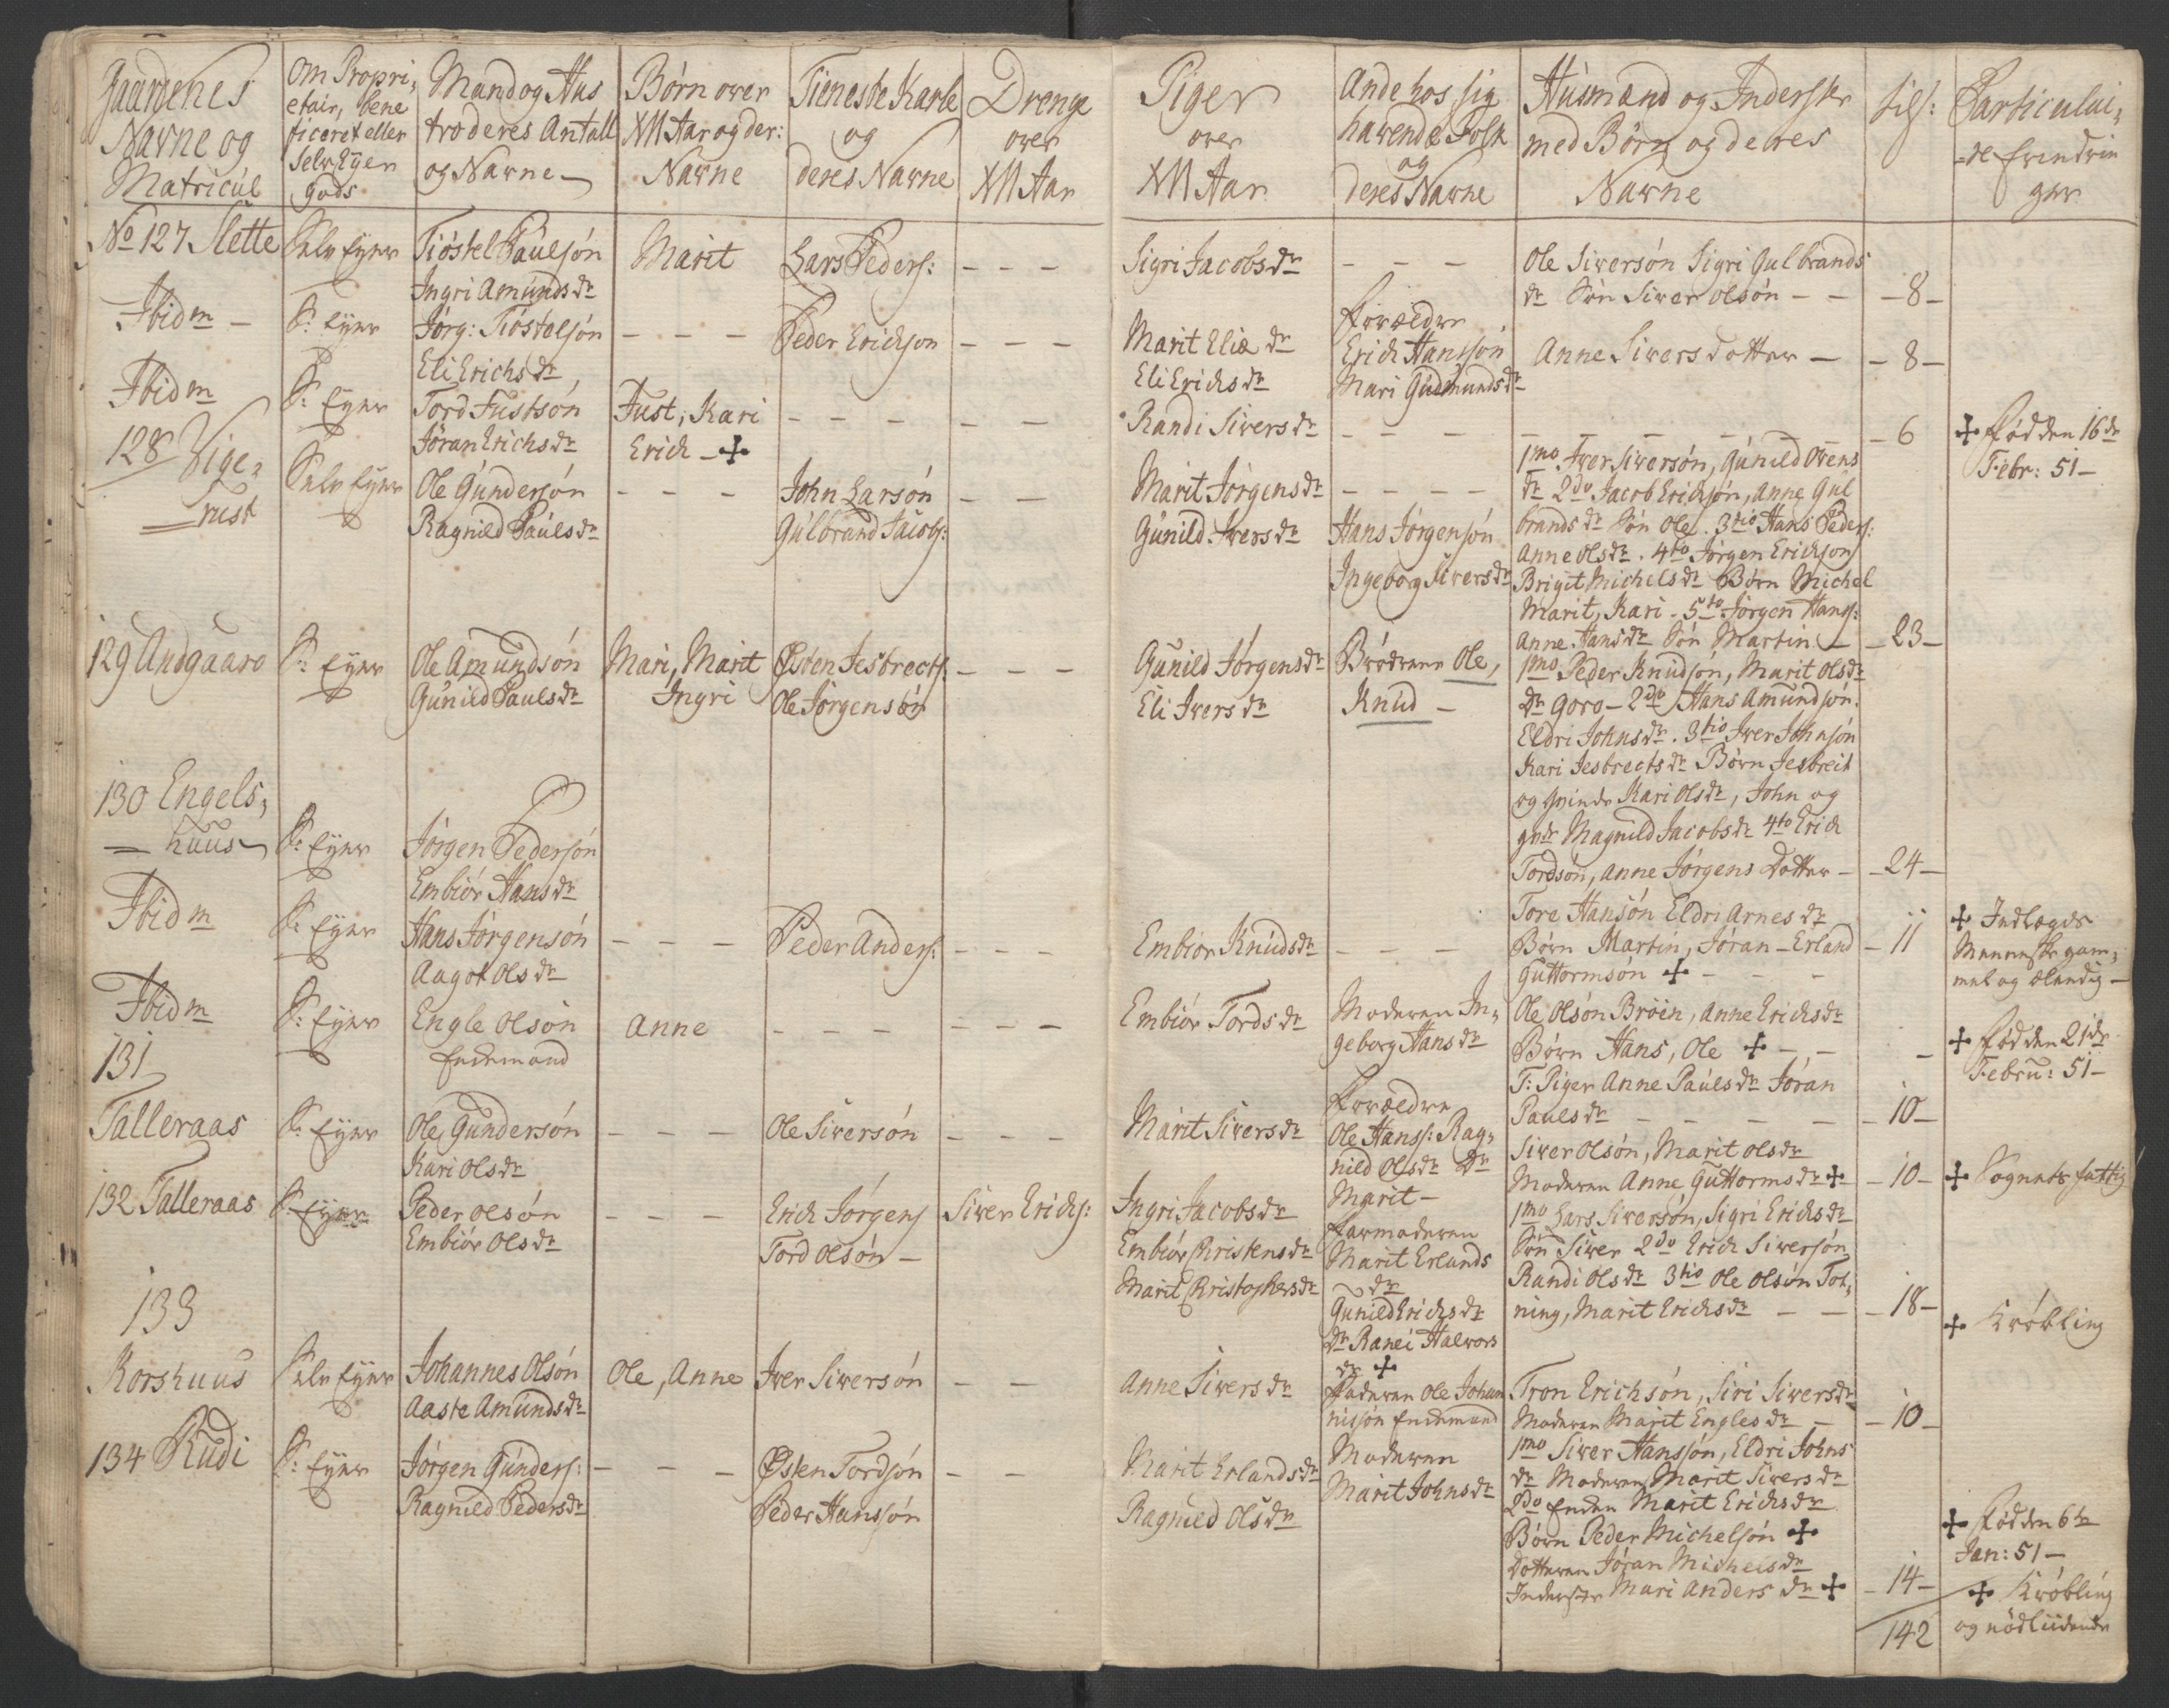 Gaardenes
Navne og
Matricul
Om Propri,
etair, bene
ficeret eller
Selv Eyer
Gods
Mand og Hus
tro deres Antall
og Navne
Børn over
XII Aar og der:
Navne
Tieneste Karle
og
deres Navne
Drenge
over
XII Aar
Piger
over
XII Aar
Ande hos sig
havende Folk
og
deres Navne
Husmænd og Inderster
med Børn og deres
Navne
Particulai,
-re Erindrin
ger
No 127 Slette
Selv Eyer
Tiøstel Paulsøn
Ingri Amunds dr
Marit
Lars Peders:
- - -
Sigri Jacobs dr
- - -
Ole Siversøn Sigri Gulbrands
dr Søn Siver Olsøn - -
- 8 -
Ibidm -
S: Eyer
Jørg: Tiøstelsøn
Eli Erichs dr
- - -
Peder Erichson
- - -
Marit Eliæ dr
Eli Erichs dr
Forældre
Erich Hansøn
Mari Gudmunds dr
Anne Sivers Dotter -
- 8 -
Ibidm
S: Eyer
Tord Justsøn
Jøran Erichs dr
Just, Kari
Erich - ✢
- - -
- -
Randi Sivers dr
- - -
- 6
✢ Fød den 16de
Febr: 51 -
128 Vige,
rust
Selv Eyer
Ole Gundersøn
Ragnild Pauls dr
- - -
John Larsøn
Gulbrand Jacobs:
- -
Marit Jørgens dr
Gunild Ivers dr
- - - -
Hans Jørgensøn
Ingeborg Sivers dr
1mo Iver Siversøn, Gunild Ovens
dr 2do Jacob Erichsøn, Anne Gul
brands dr Søn Ole. 3tio Hans Peders:
Anne Ols dr. 4to Jørgen Erichson
Brigit Michels dr Børn Michel
Marit, Kari - 5to Jørgen Hans:
Anne Hans dr Søn Martin -
- 23 -
129 Andgaard
S: Eyer
Ole Amundsøn
Gunild Pauls dr
Mari, Marit
Ingri
Østen Jesbrects:
Ole Jørgensøn
- - -
Gunild Jørgens dr
Eli Ivers dr
Brødrene Ole,
Knud -
1mo Peder Knudsøn, Marit Ols dr
Dr Goro - 2do Hans Amundsøn.
Eldri Johns dr. 3tio Iver Johnsøn
Kari Jesbrects dr Børn Jesbreit
og Kari Ols dr, John og
Magnild Jacobs dr 4to Erich
Tordsøn, Anne Jørgens Dotter -
- 24 -
130 Engels,
huus
S: Eyer
Jørgen Pedersøn
Embiør Hans dr
Ibidm
S: Eyer
Hans Jørgensøn
Aagot Ols dr
- - -
Peder Anders:
- - -
Embior Knuds dr
- - -
Tore Hansøn Eldri Arnes dr
Børn Martin, Jøran - Erland
Guttormsøn ✢ - - -
- 11
✢ Indlagde
Menneske gam,
mel og elendig -
Ibidm
S: Eyer
Engle Olsøn
Enkemand
Anne
- - -
- - -
Embiør Tords dr
Moderen In,
geborg Hans dr
Ole Olsøn Brøin, Anne Erichs dr
Børn Hans, Ole ✢ - -
T: Piger Anne Pauls dr Jøran
Pauls dr - - - -
- 10 -
✢ Fød den 21de
Febru: 51 -
131
Talleraas
S: Eyer
Ole Gundersøn
Kari Ols dr
- - -
Ole Siversøn
- - -
Marit Sivers dr
Forældre
Ole Hans: Rag,
nild Ols dr Dr
Marit -
Siver Olsøn, Marit Ols dr
Moderen Anne Guttorms dr ✢
- 10 -
✢ Sognets fattig
132 Talleraas
S: Eyer
Peder Olsøn
Embiør Ols dr
- - -
Erich Jørgens
Tord Olsøn -
Siver Erichs:
Ingri Jacobs dr
Embiør Kristens dr
Marit Kristophers dr
Farmoderen
Marit Erlands
dr
Gunild Erichs dr
Dr Ranei Halvors
dr ✢
1mo Lars Siversøn, Sigri Erichs dr
Søn Siver 2do Erich Siversøn,
Randi Ols dr 3tio Ole Olsøn Toh,
ning, Marit Erichs dr - -
- 18 -
✢ Krøbling
133
Korshuus
Selv Eyer
Johannes Olsøn
Aaste Amunds dr
Ole, Anne
Iver Siversøn
- -
Anne Sivers dr
Faderen Ole Johan
nissøn Enkemand
Tron Erichsøn, Siri Sivers dr
Moderen Marit Engles dr -
- 10 -
134 Rudi
S: Eyer
Jørgen Gunders:
Ragnild Peders dr
- - -
Østen Tordsøn
Peder Hansøn
- -
Marit Erlands dr
Ragnild Ols dr
Moderen
Marit Johns dr
1mo Siver Hansøn, Eldri Johns
dr Moderen Marit Sivers dr
2do Enken Marit Erichs dr
Børn Peder Michelsøn ✢
Dotteren Jøran Michels dr
Inderster Mari Anders dr ✢
- 14 -
✢ Fød den 6te
Jan: 51 -
✢ Krøbling
og nødliidende
142